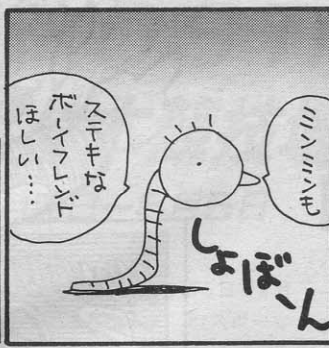 ミンミンも
ステキな
ボーイフレンド
ほしい…
しょぼーん